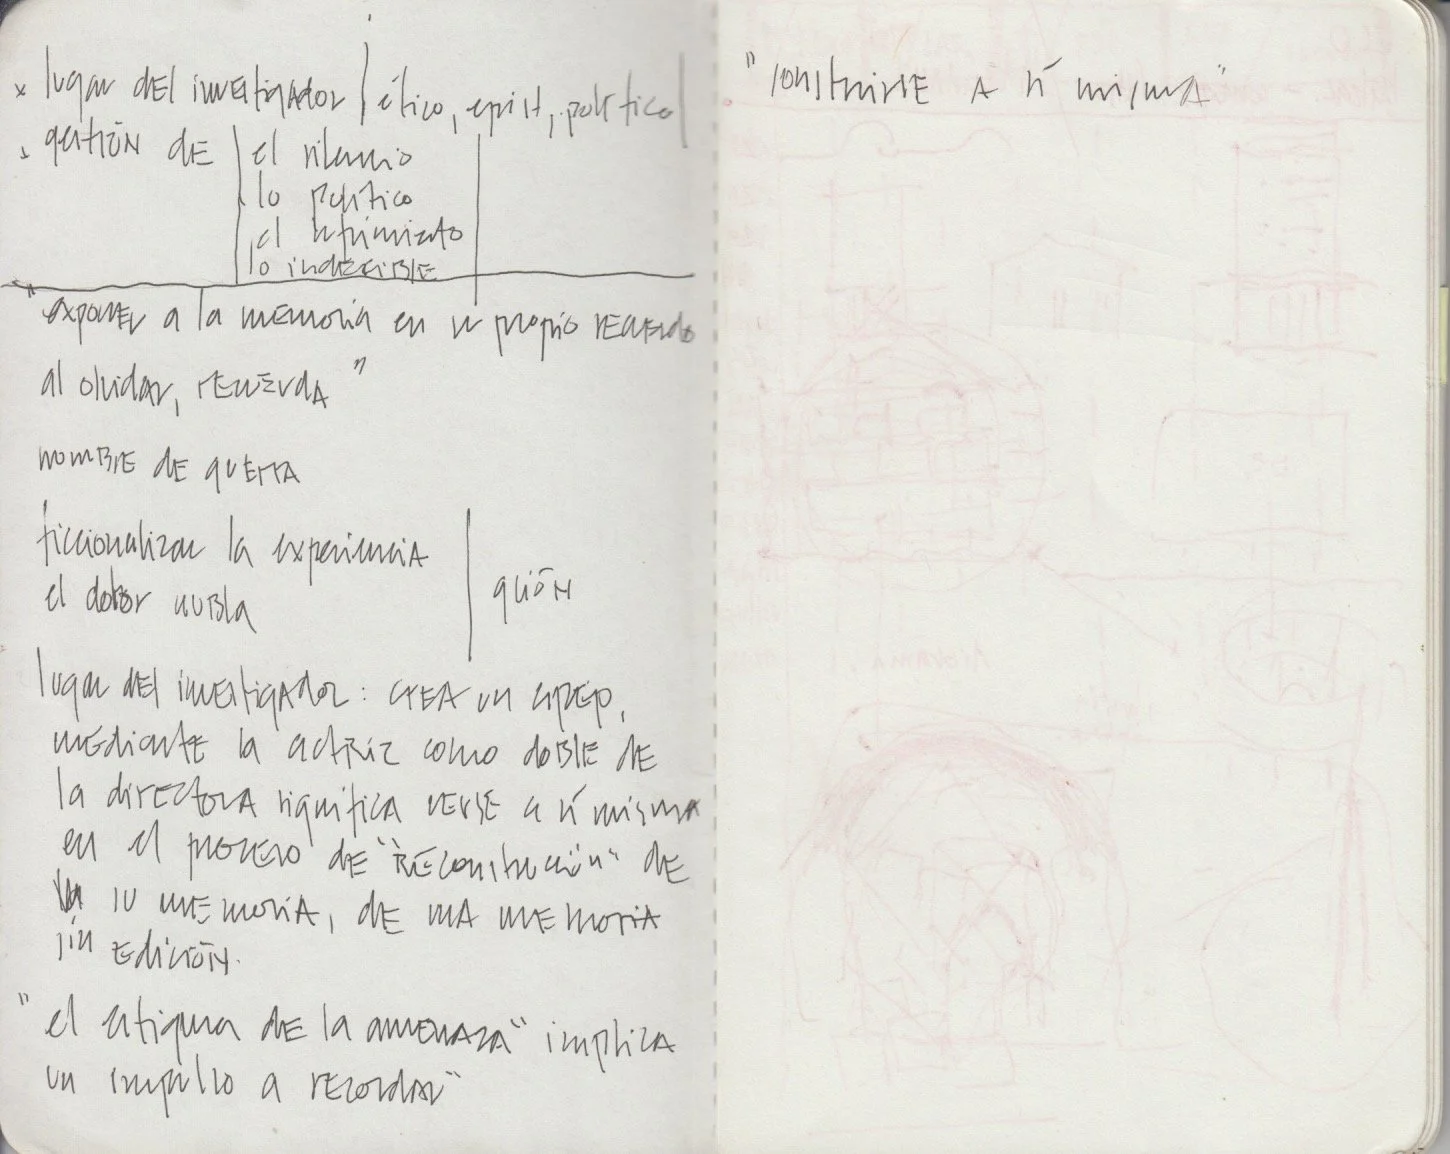 x lugar del investigador | ético, epist, político |
x gestión de | el silencio
lo político
el sufrimiento
lo indecible
"exponer a la memoria en su propio recuerdo
al olvidar, recuerda"
nombre de guerra
ficcionalizar la experiencia
el dolor nubla
guión
lugar del investigador: crea un espejo,
mediante la actriz como doble de
la directora significa verse a sí misma
en el proceso de "reconstrucción" de
su memoria, de una memoria
sin edición.
"el estigma de la amenaza" implica
un impulso a recordar"
"construirse a sí misma"